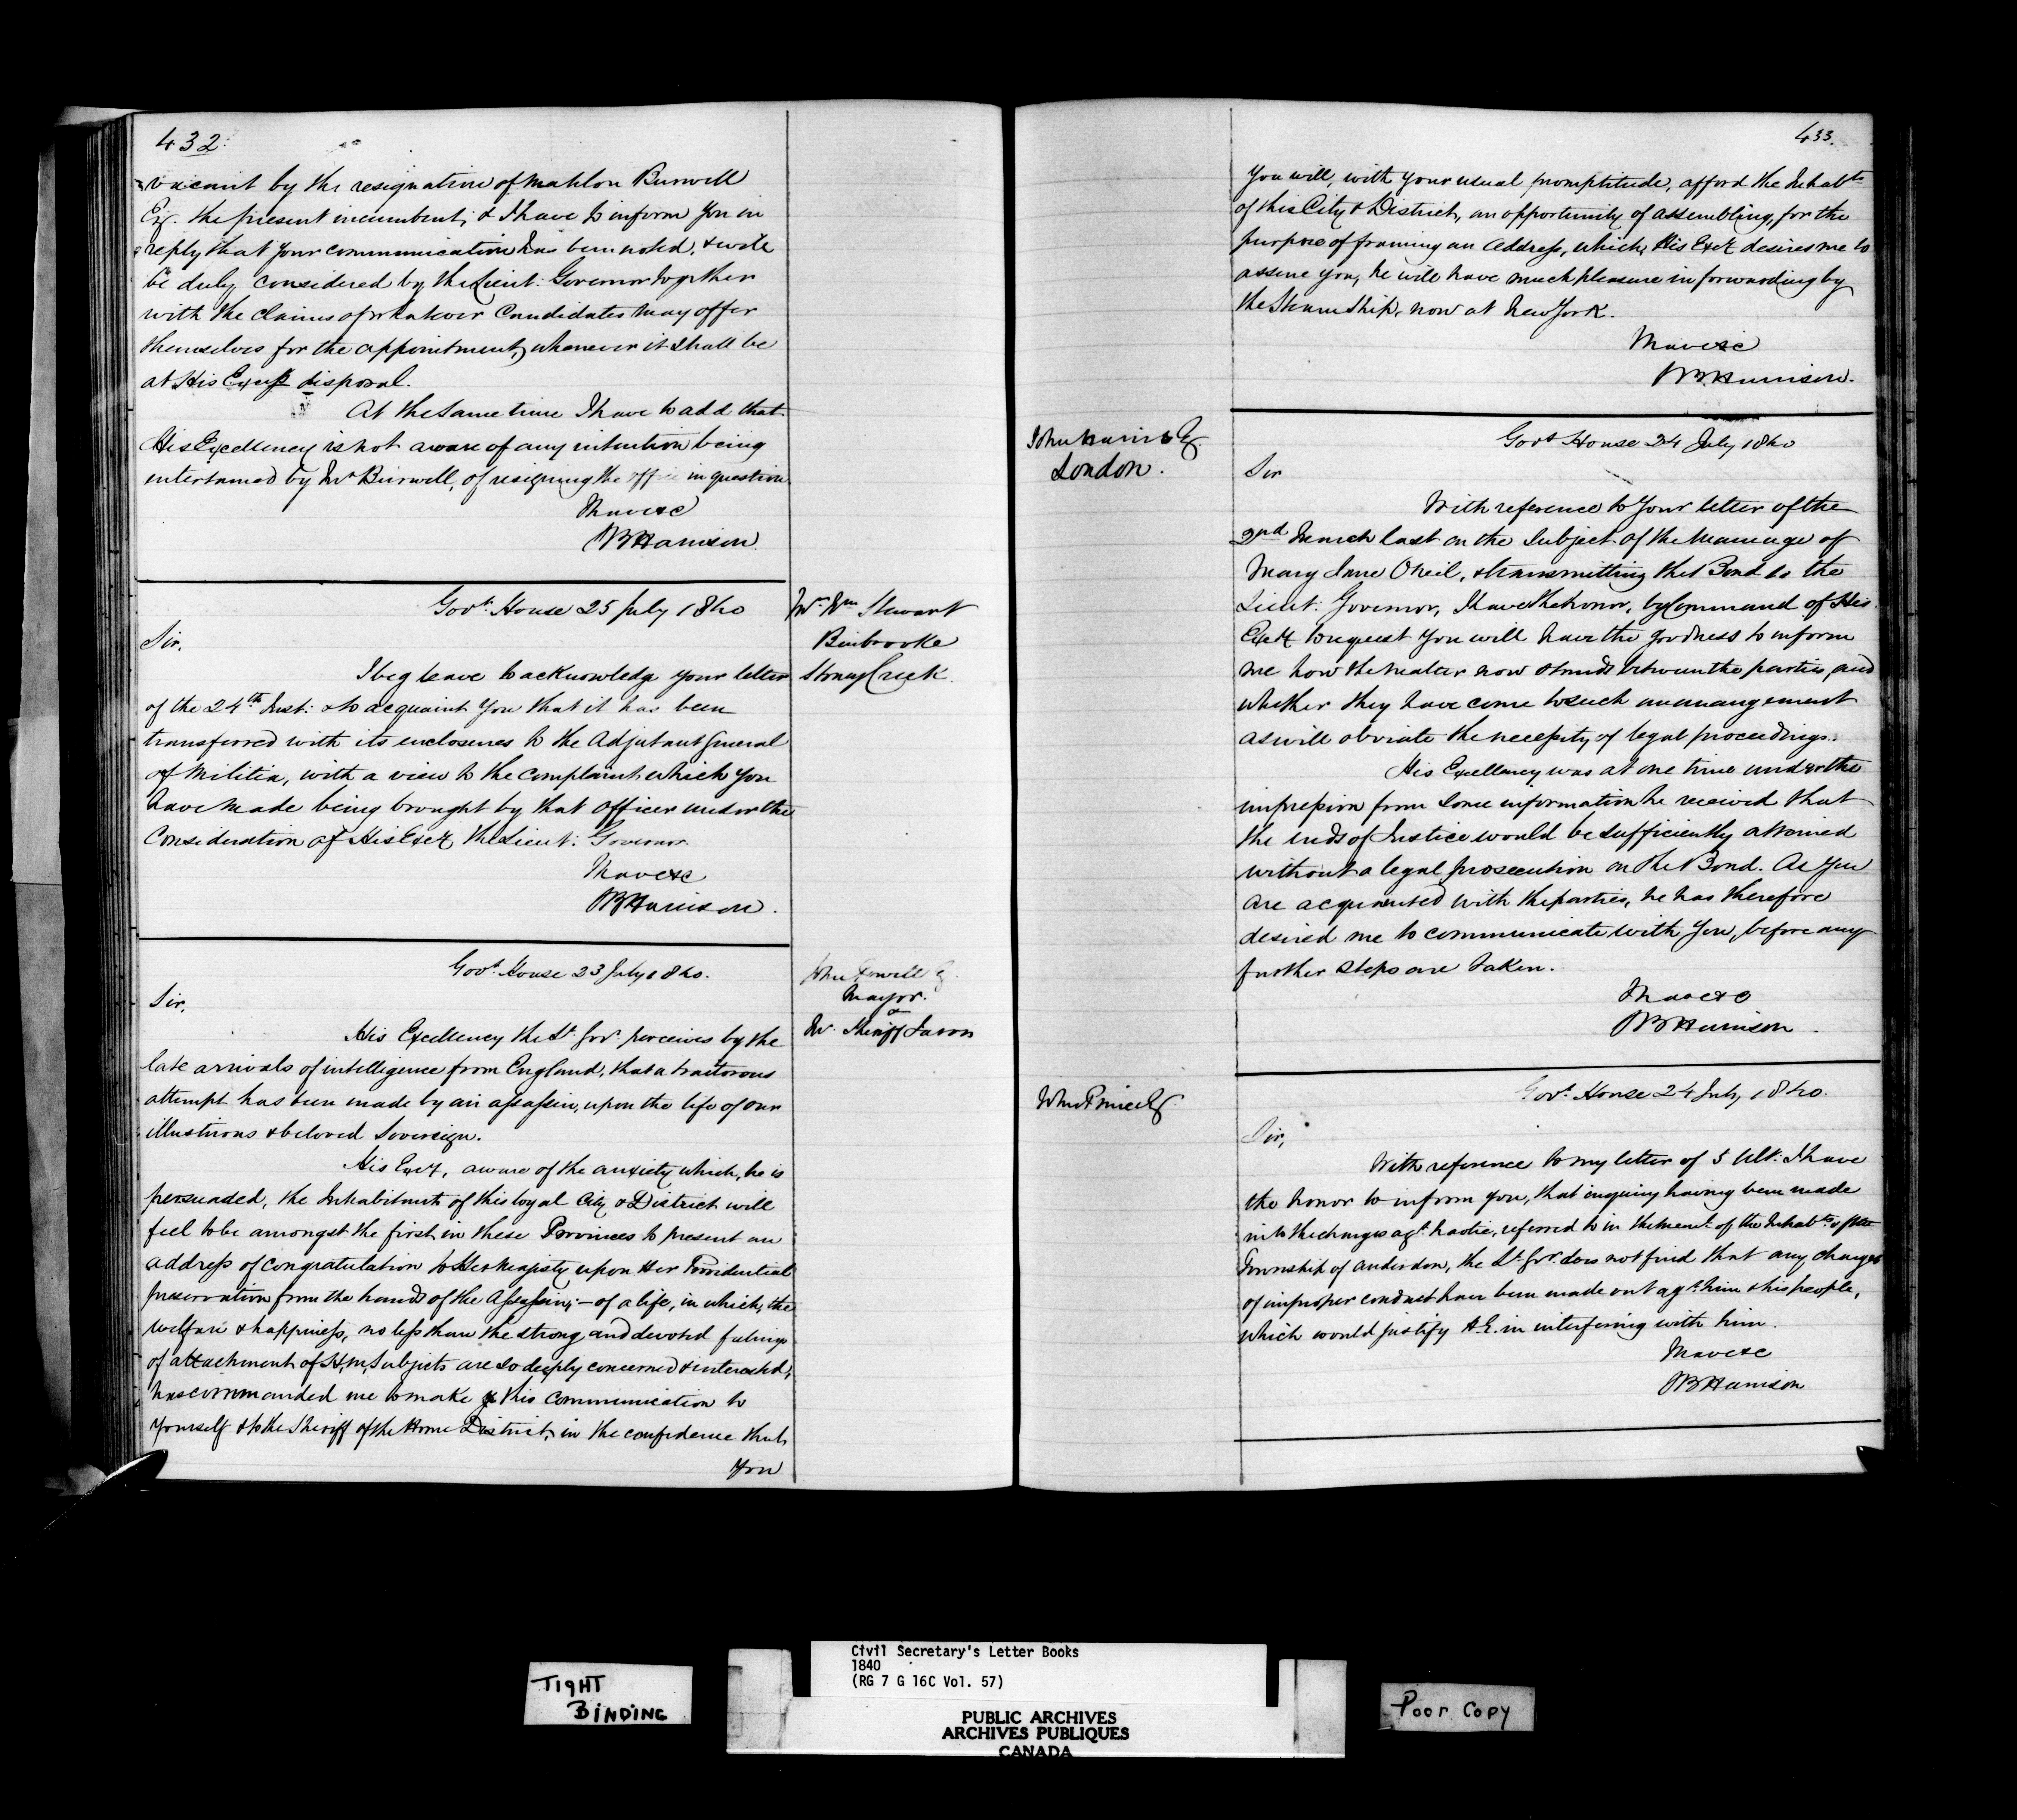 432.
vacant by the resignation of Mahlon Burwell
Esq. the present incumbent, & I have to inform you in
reply that your communication has been noted, & will
be duly considered by the Lieut: Governor together
with the claims of whatever Candidates may offer
themselves for the appointment, whenever it shall be
at His Excys disposal.
At the same time I have to add that
His Excellency is not aware of any intention being
entertained by Mr Burwell, of resigning the office in question
I have &c
SBHarrison
Govt: House 25 July 1840
Mr. Wm Stewart
Binbrooke
Stoney Creek
Sir,
I beg leave to acknowledge your letter
of the 24th Inst: & to acquaint you that it has been
transferred with its enclosures to the Adjutant General
of Militia, with a view to the complaint which you
have made being brought by that Officer under the
Consideration of His Excy the Lieut: Governor.
I have &c
SBHarrison.
Govt. House 23 July 1840.
John Powell Esq.
Mayor.
&
Mr. Sheriff Jarvis
Sir,
His Excellency the Lt. Govr. perceives by the
late arrivals of intelligence from England, that a traitorous
attempt has been made by an assassin, upon the life of our
illustrious & beloved Sovereign.
His Excy, aware of the anxiety which, he is
persuaded, the Inhabitants of this loyal City & District will
feel to be amongst the first in these Provinces to present an
address of congratulation to Her Majesty upon Her Providential
preservation from the hands of the Assassin; – of a life, in which, the
welfare & happiness, no less than the strong and devoted feelings
of attachment of H.M. Subjects are so deeply concerned & interested;
has commanded me to make this communication to
yourself & to the Sheriff of the Home District, in the confidence that
You
433.
You will, with your usual promptitude, afford the Inhabts
of this City & District, an opportunity of assembling, for the
purpose of framing an Address, which, His Excy desires me to
assure you, he will have much pleasure in forwarding by
the Steam Ship, now at New York.
I have &c
SBHarrison.
John Harris Esq
London.
Govt House 24 July 1840
Sir
With reference to your letter of the
2nd March last on the subject of the Marriage of
Mary Jane ONeil, & transmitting the Bond to the
Lieut: Governor, I have the honor, by Command of His
Excy to request you will have the goodness to inform
me how the matter now stands between the parties, and
whether they have come to such an arrangement
as will obviate the necessity of legal proceedings.
His Excellency was at one time under the
impression from some information he received that
the ends of Justice would be sufficiently attained
without a legal prosecution on the Bond. As you
are acquainted with the parties, he has therefore
desired me to communicate with you, before any
further steps are taken.
I have &c
SBHarrison.
John Prince Esq.
Govt. House 24 July 1840.
Sir,
With reference to my letter of 5 Ult: I have
the honor to inform you, that inquiry having been made
into the charges agt. referred to in the meml. of the Inhabts. of the
Township of Anderdon, the Lt. Govr. does not find that any charges
of improper conduct have been made out agt. him & his people,
which would justify H.E. in interfering with him.
I have &c
SBHarrison
TIGHT
BINDING
Civil Secretary's Letter Books
1840
(RG 7 G 16C Vol. 57)
PUBLIC ARCHIVES
ARCHIVES PUBLIQUES
CANADA
Poor Copy